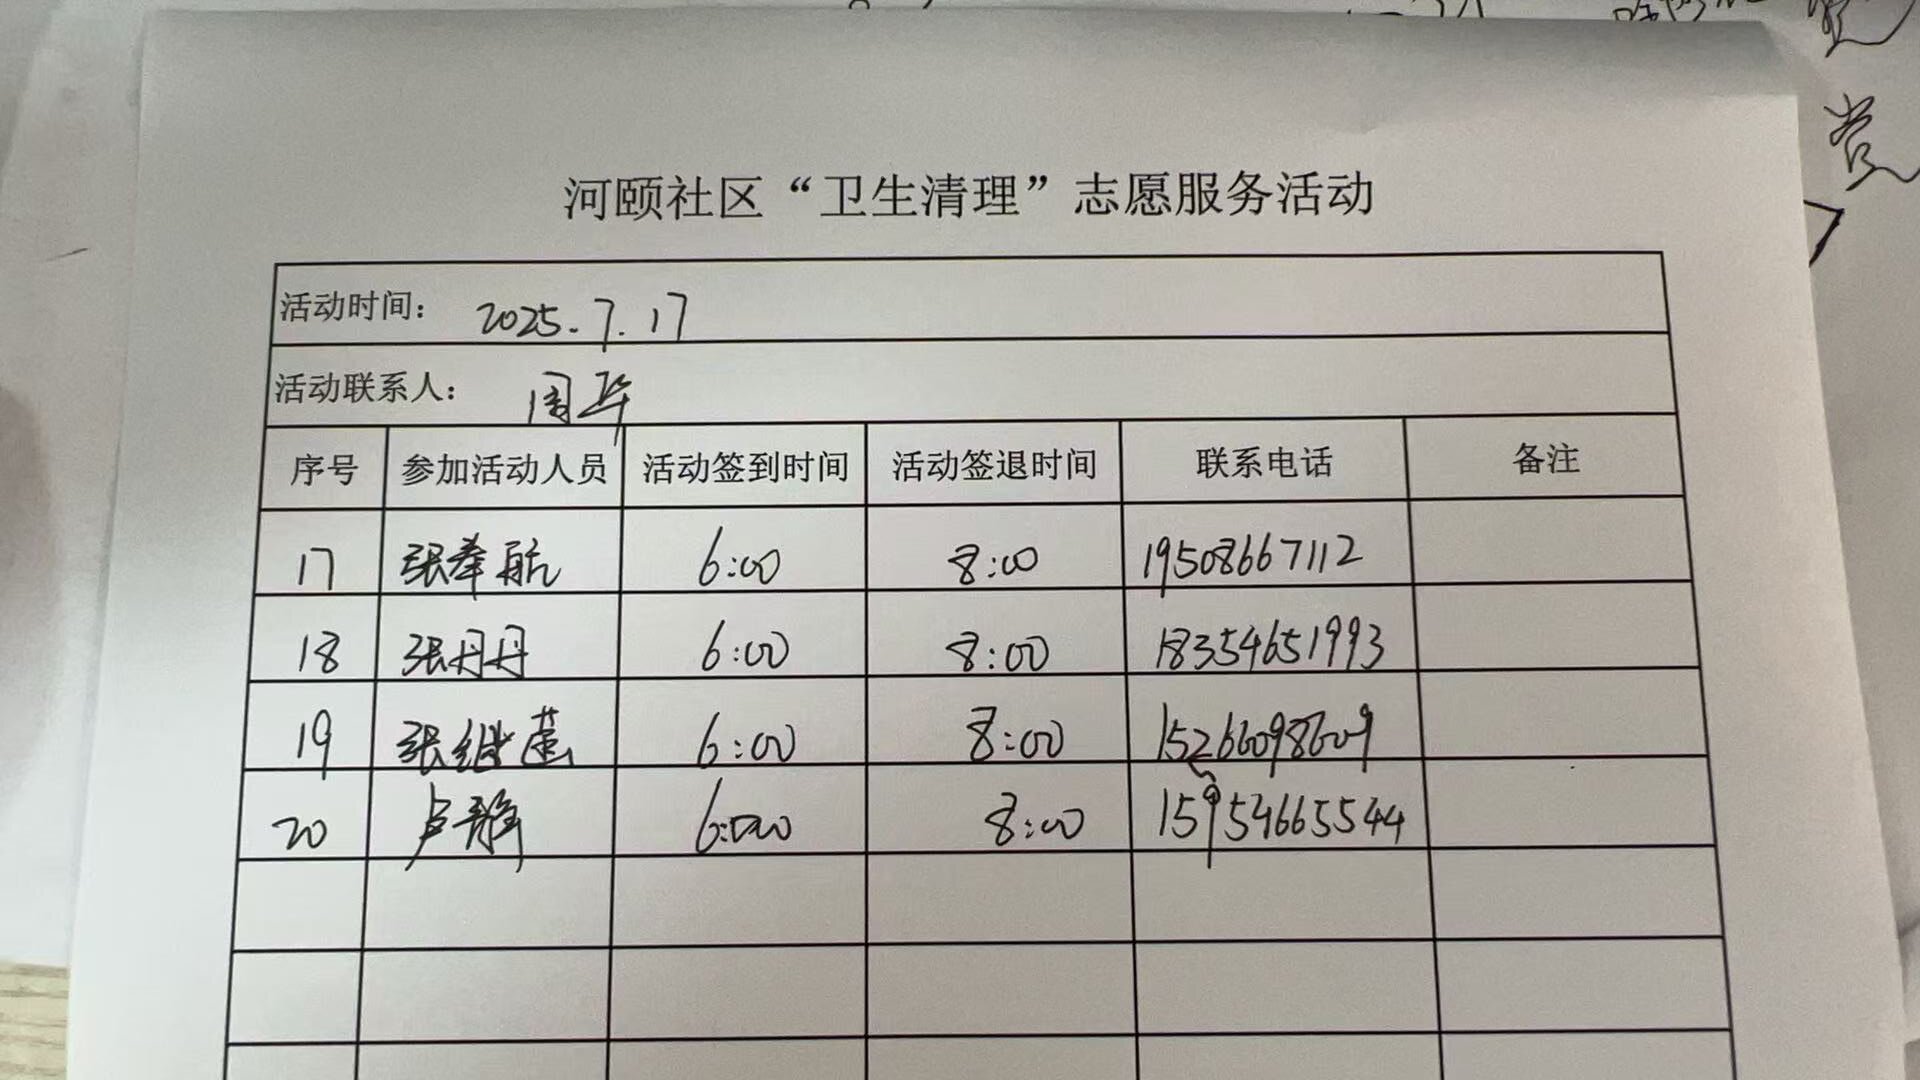 河颐社区“卫生清理”志愿服务活动
活动时间： 2025.7.17
活动联系人： 周华
序号 参加活动人员 活动签到时间 活动签退时间 联系电话 备注
17 张峯航 6:00 8:00 19508667112
18 张丹丹 6:00 8:00 18354651993
19 张继莲 6:00 8:00 15266098609
20 卢静 6:00 8:00 15954665544